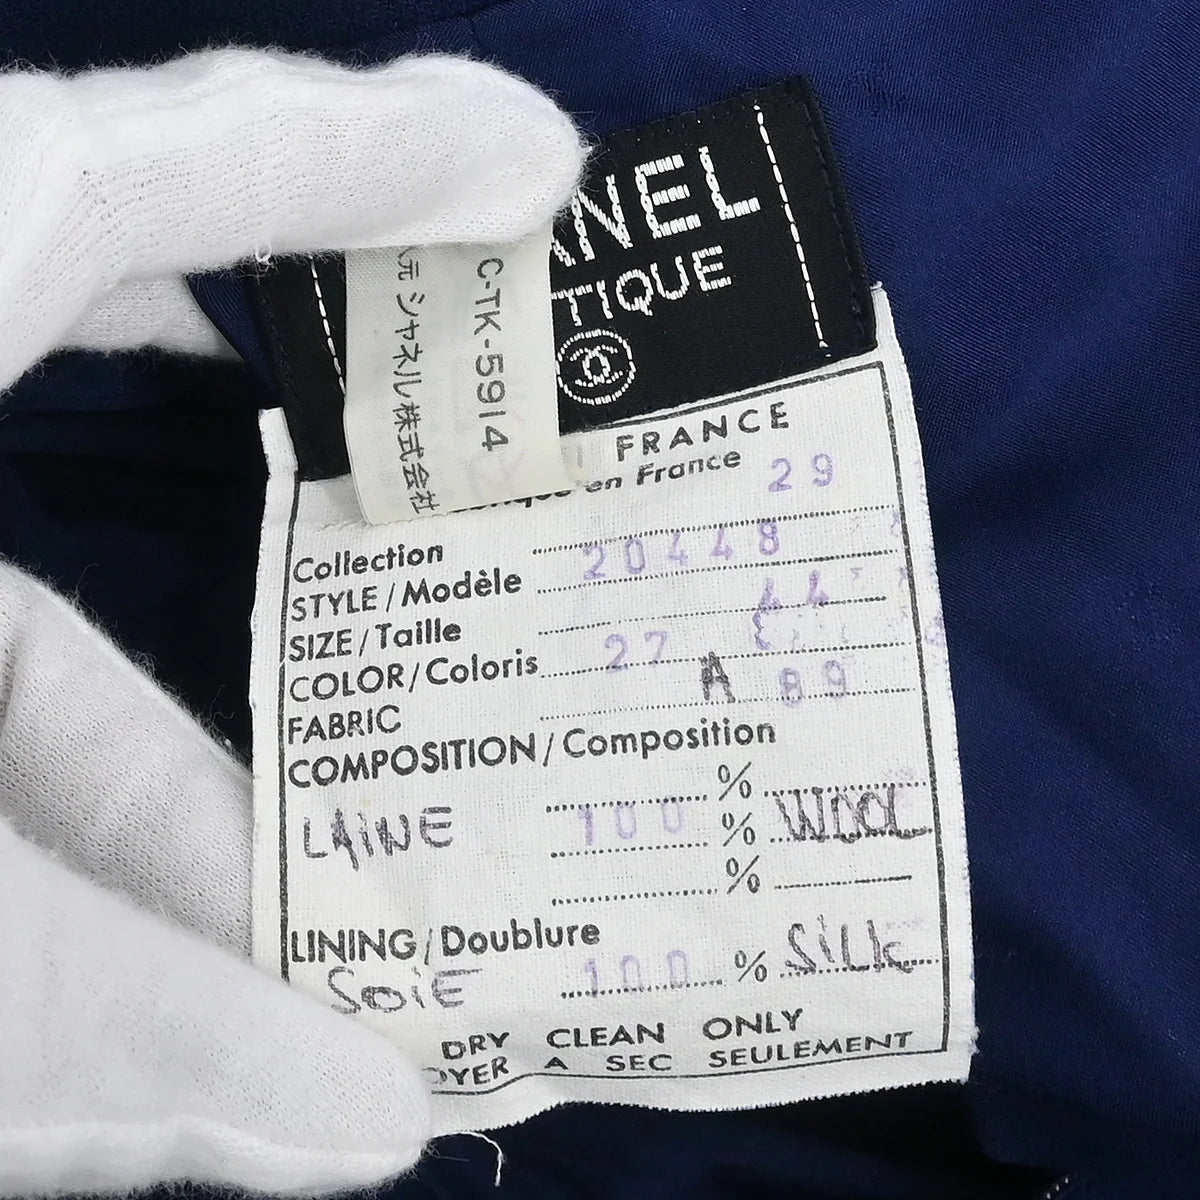 ANEL
TIQUE
C-TK-5914
元 シャネル株式会社
FRANCE
en France
Collection 29
STYLE/Modèle 20448
SIZE/Taille 44
COLOR/Coloris 27
FABRIC A 89
COMPOSITION/Composition
%
LAINE 100 % WOOL
%
LINING/Doublure
SOIE 100 % SILK
DRY CLEAN ONLY
OYER A SEC SEULEMENT